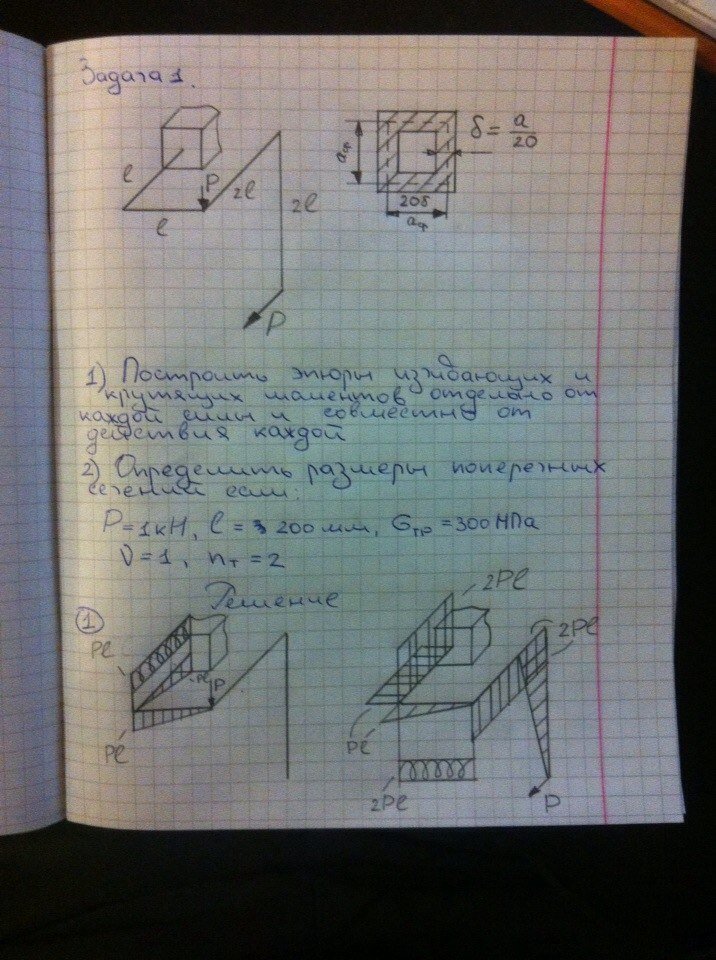 Задача 1.
l
P
2l
l
2l
P
aср
δ = a/20
20δ
aср
1) Построить эпюры изгибающих и
крутящих моментов отдельно от
каждой силы и совместно от
действия каждой
2) Определить размеры поперечных
сечений если:
P = 1кН, l = 200 мм, σпр = 300 МПа
ν = 1, nт = 2
Решение
1
Pl
Pl
P
Pl
2Pl
2Pl
Pl
2Pl
P